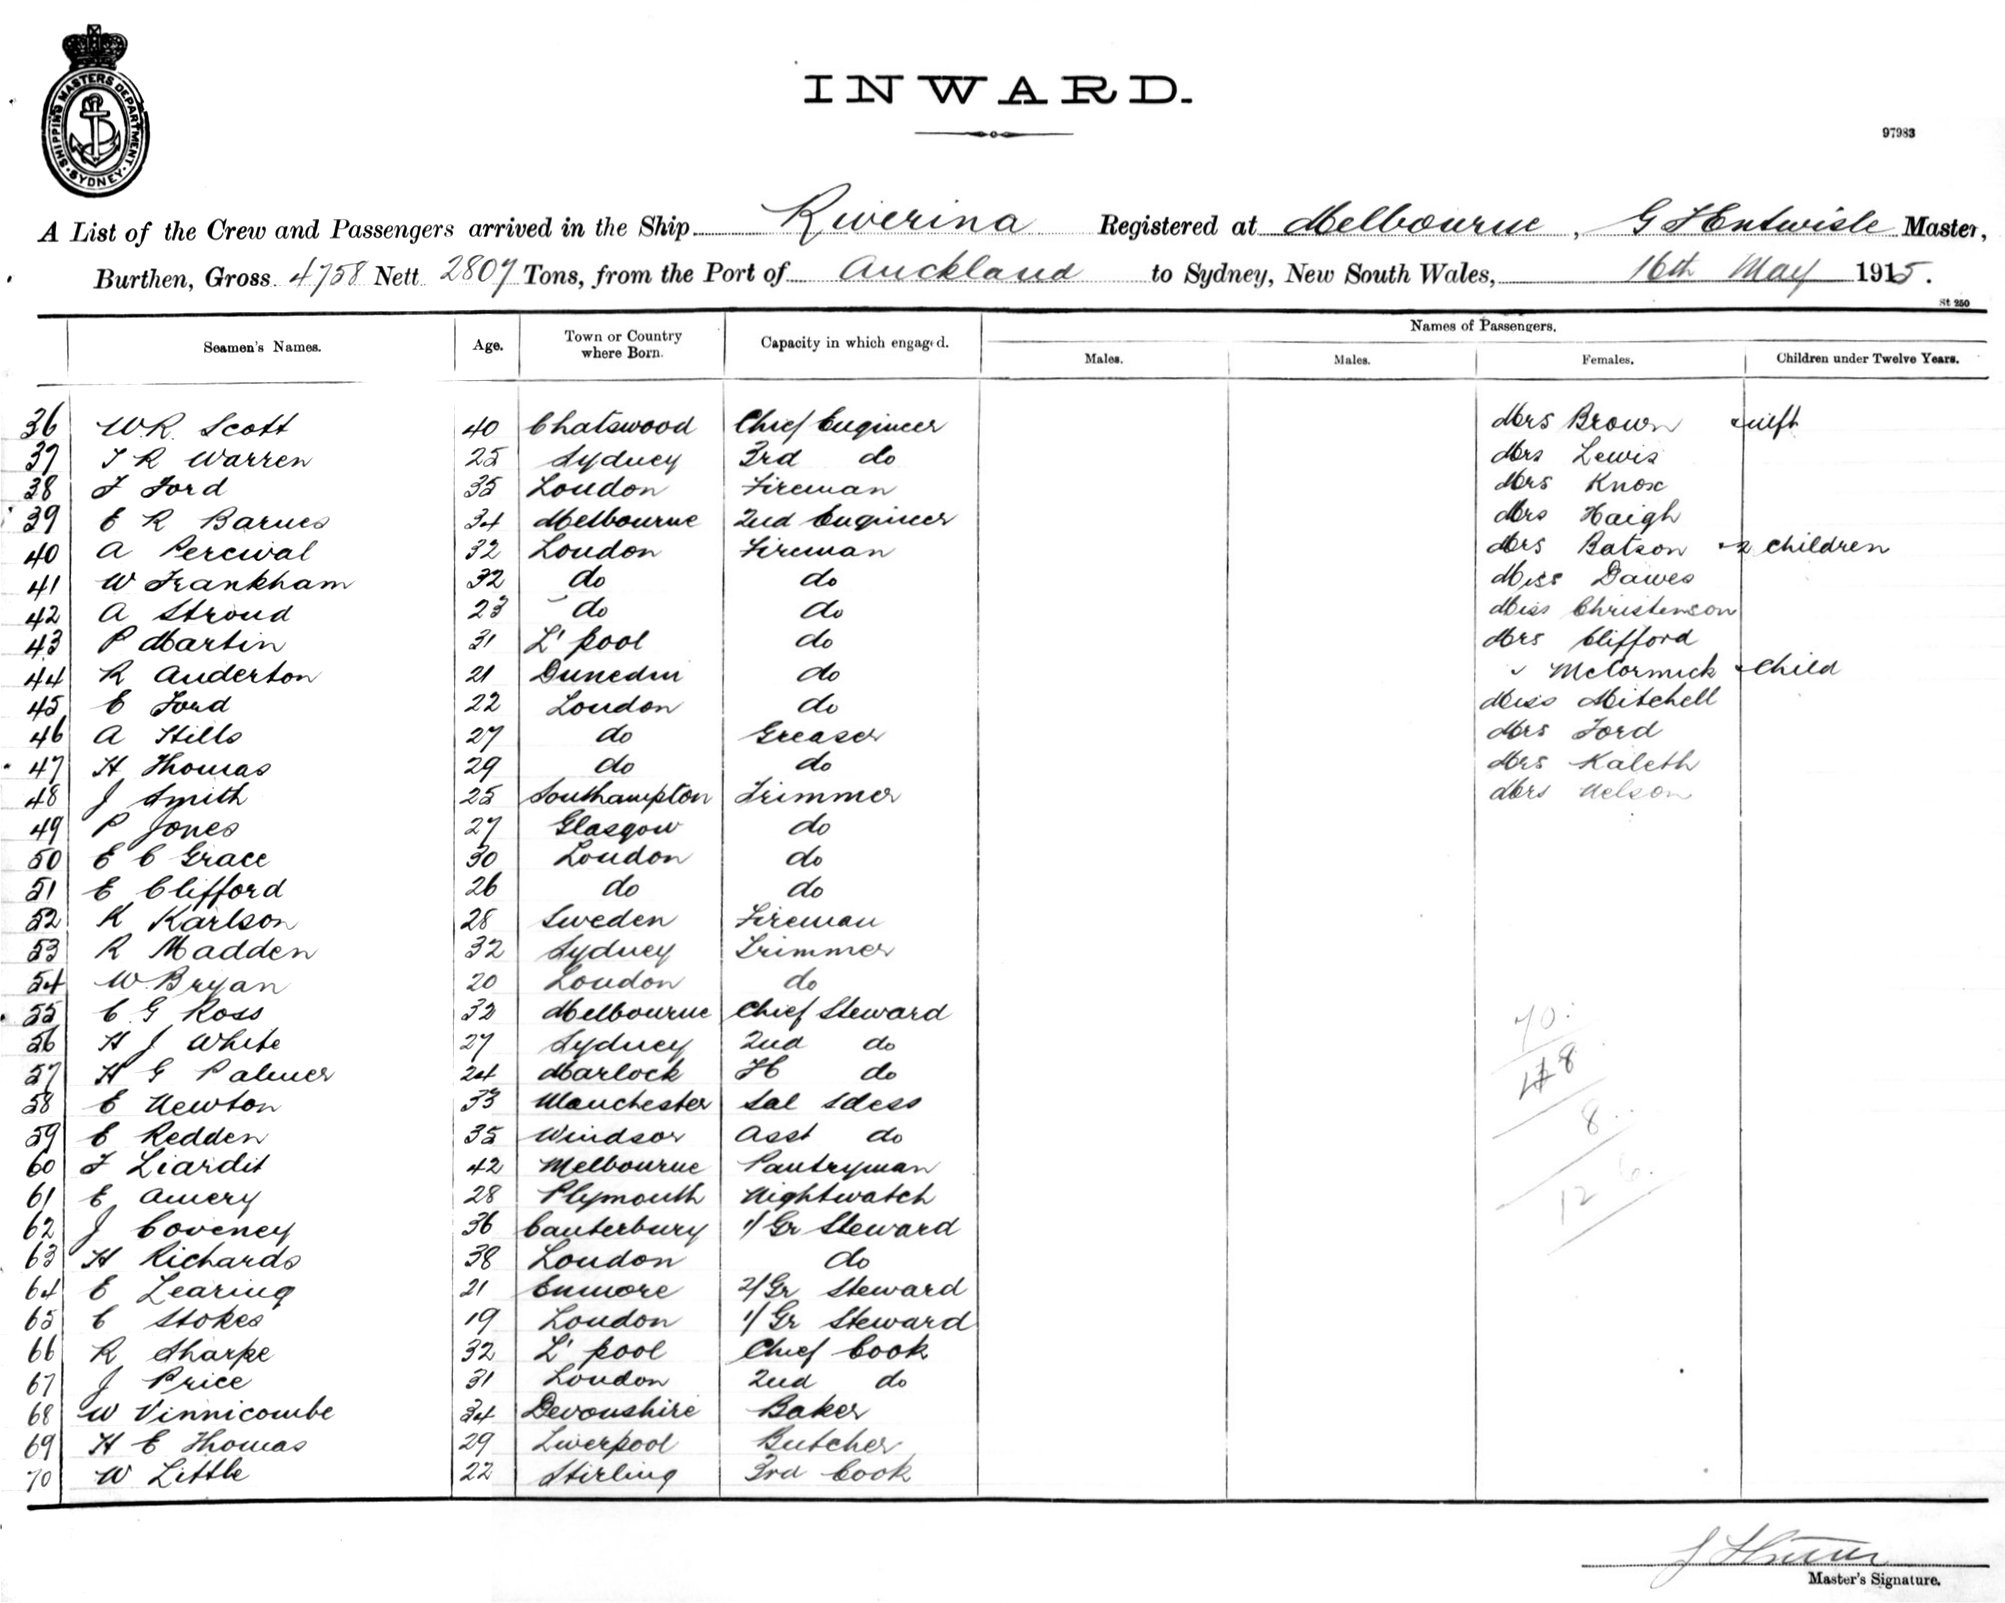 SHIPPING MASTERS DEPARTMENT
SYDNEY
INWARD.
97983
A List of the Crew and Passengers arrived in the Ship Riverina Registered at Melbourne, G Hentwisle Master,
Burthen, Gross 4758 Nett 2807 Tons, from the Port of Auckland to Sydney, New South Wales, 16th May 1915.
St 250
Names of Passengers.
Seamen's Names. Age. Town or Country where Born. Capacity in which engaged. Males. Males. Females. Children under Twelve Years.
36 W.R. Scott 40 Chatswood Chief Engineer Mrs Brown & inft
37 J R Warren 25 Sydney 3rd do Mrs Lewis
38 J Ford 35 London Fireman Mrs Knox
39 E R Barnes 34 Melbourne 2nd Engineer Mrs Haigh
40 A Percival 32 London Fireman Mrs Batson & 2 children
41 W Frankham 32 do do Miss Dawes
42 A Stroud 23 do do Miss Christenson
43 P Martin 31 L'pool do Mrs Clifford
44 R Anderton 21 Dunedin do " McCormick & Child
45 C Ford 22 London do Miss Mitchell
46 A Hills 27 do Greaser Mrs Ford
47 H Thomas 29 do do Mrs Kaleth
48 J Smith 25 Southampton Trimmer Mrs Nelson
49 P Jones 27 Glasgow do
50 E C Grace 30 London do
51 E Clifford 26 do do
52 K Karlson 28 Sweden Fireman
53 R Madden 32 Sydney Trimmer
54 W. Bryan 20 London do
55 C. G Ross 32 Melbourne Chief Steward
56 H J White 27 Sydney 2nd do
57 H G Palmer 24 Marlock H do
58 E Newton 33 Manchester Sal Sdess
59 E Redden 35 Windsor Asst do
60 J Liardit 42 Melbourne Pantryman
61 E Amery 28 Plymouth Nightwatch
62 J Coveney 36 Canterbury 1/ Gr Steward
63 H Richards 38 London do
64 E Learing 21 Enmore 2/ Gr Steward
65 C Stokes 19 London 1/ Gr Steward
66 R Sharpe 32 L'pool Chief Cook
67 J Price 31 London 2nd do
68 W Vinnicombe 34 Devonshire Baker
69 H E Thomas 29 Liverpool Butcher
70 W Little 22 Stirling 3rd Cook
70
8
8
12 6
Master's Signature.